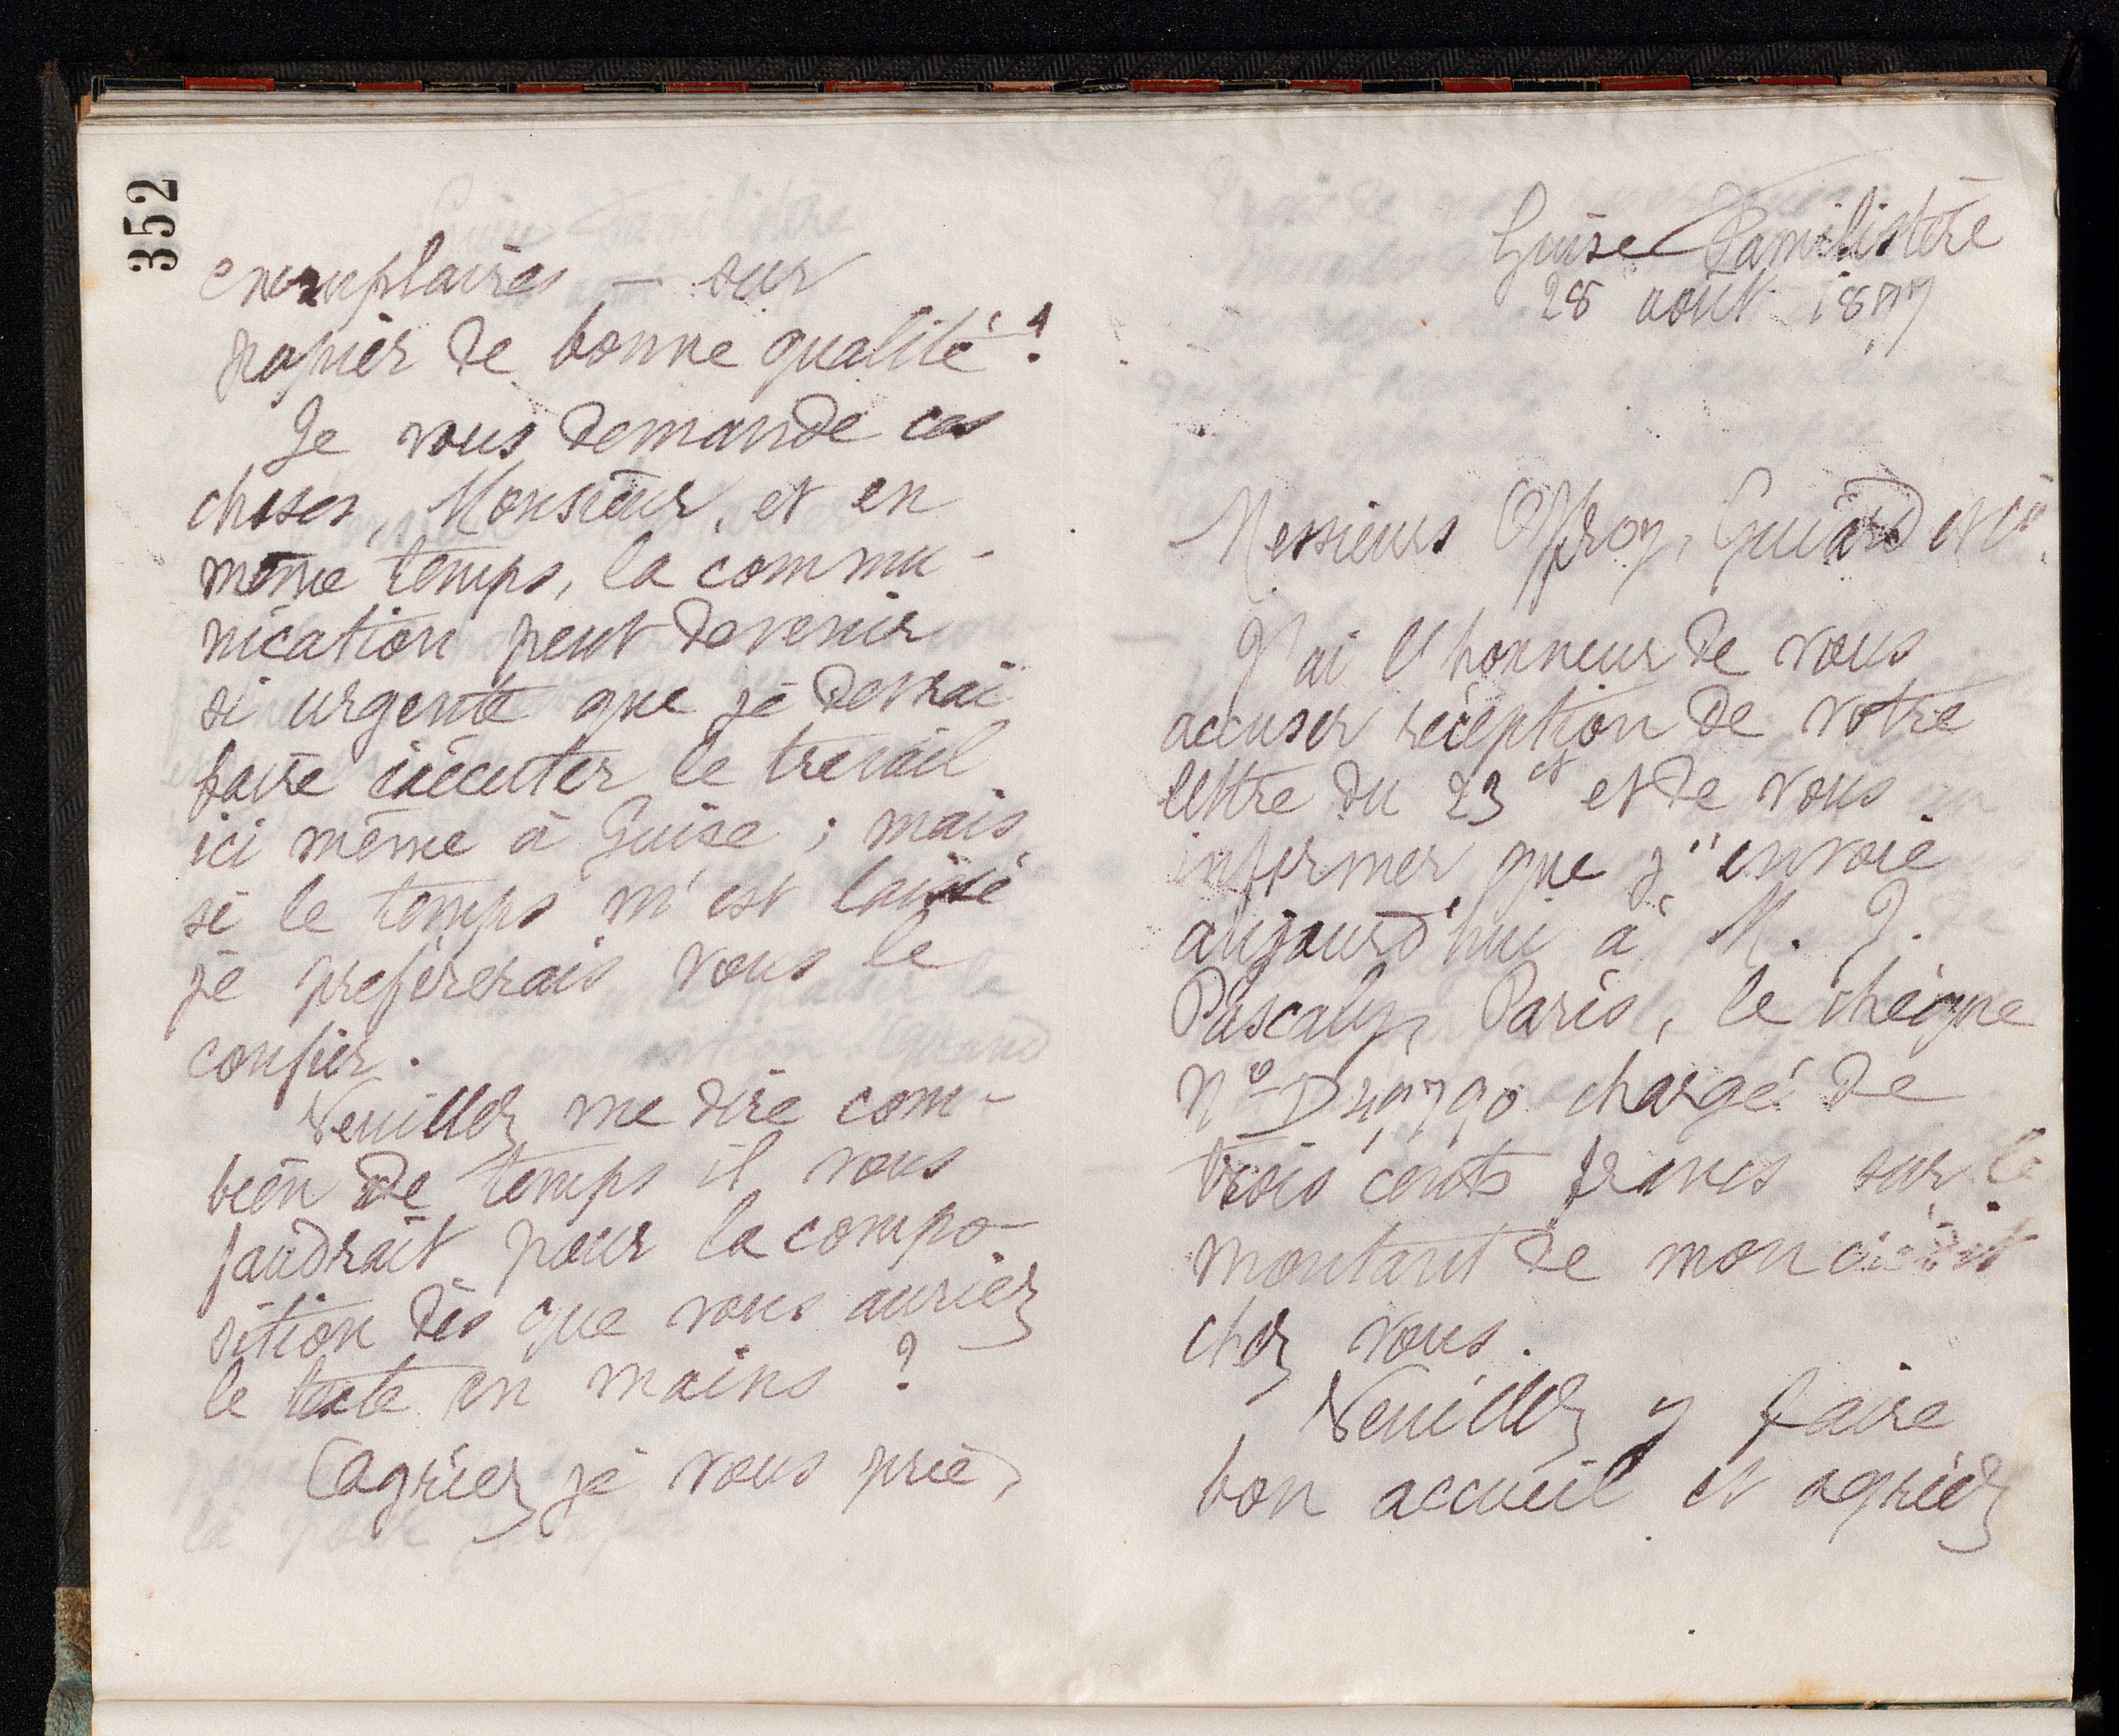 352
exemplaires – sur
papier de bonne qualité !
Je vous demande ces
choses, Monsieur, et en
même temps, la commu-
nication peut devenir
si urgente que je devrai
faire exécuter le travail
ici même à Guise ; mais
si le temps m'est laissé
je préfèrerais vous le
confier.
Veuillez me dire com-
bien de temps il vous
faudrait pour la compo-
sition dès que vous auriez
le texte en mains ?
Cagréez je vous prie,
Guise Familistère
28 août 1877
Messieurs Offroy, Guiard et Cie.
J'ai l'honneur de vous
accuser réception de votre
lettre du 23 ct et de vous
informer que j'envoie
aujourd'hui à M. J.
Pascaly, Paris, le chèque
No D 49790 chargé de
trois cents francs sur le
montant de mon crédit
chez vous.
Veuillez y faire
bon accueil et agréez